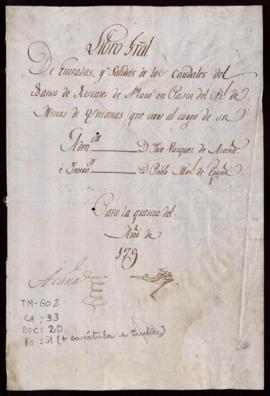 Libro Gral
De Entradas, y Salidas de los Caudales del
Banco de Rescates de Plata en Pasta del Rl. de
Minas de que corre al cargo de su
Admor. D. Juan Vazquez de Acuña
i D. Pablo
Para la quenta del
Año de
179
Acuña
TM-602
CA: 33
DOC: 20
Fs: 31 (+ carátula e